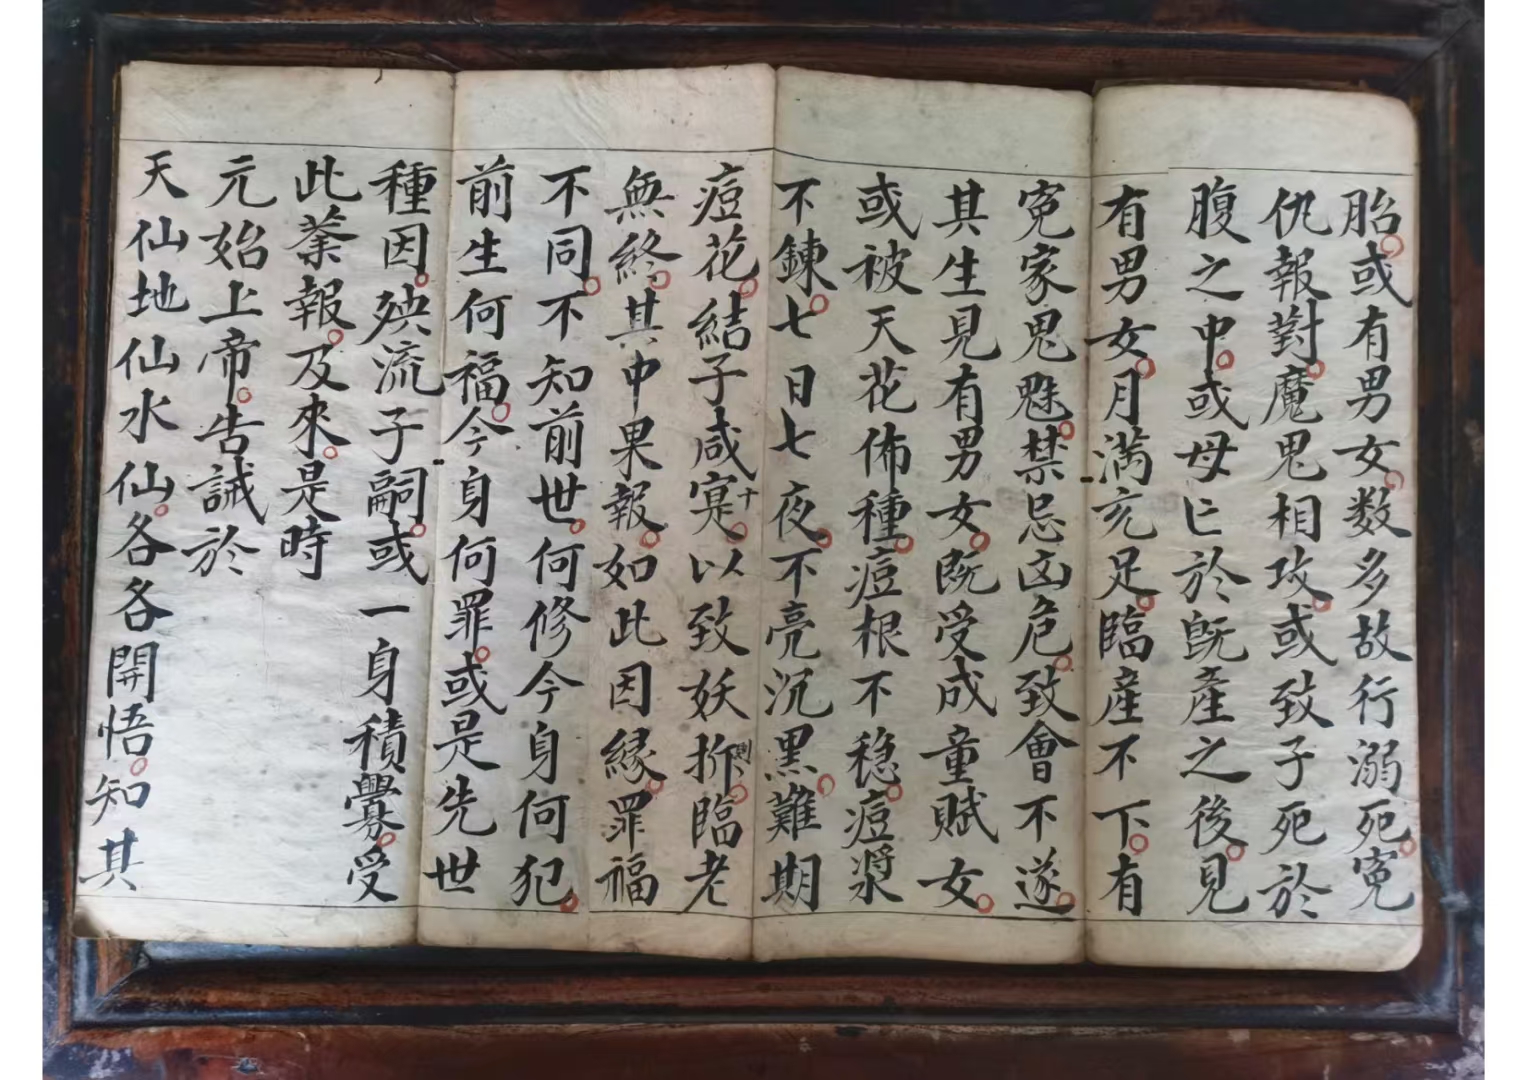 胎或有男女数多故行溺死寃
仇報對魔鬼相攻或致子死於
腹之中或母亡於既產之後見
有男女月滿充足臨產不下有
寃家鬼魅禁忌凶危致會不遂
其生見有男女既受成童賦女
或被天花佈種痘根不稳痘漿
不鍊七日七夜不亮沉黑難期
痘花結子咸寔十以致妖折則臨老
無終其中果報如此因緣罪福
不同不知前世何修今身何犯
前生何福今身何罪或是先世
種因殃流子嗣或一身積釁受
此業報及來是時
元始上帝告誡於
天仙地仙水仙各各開悟知其